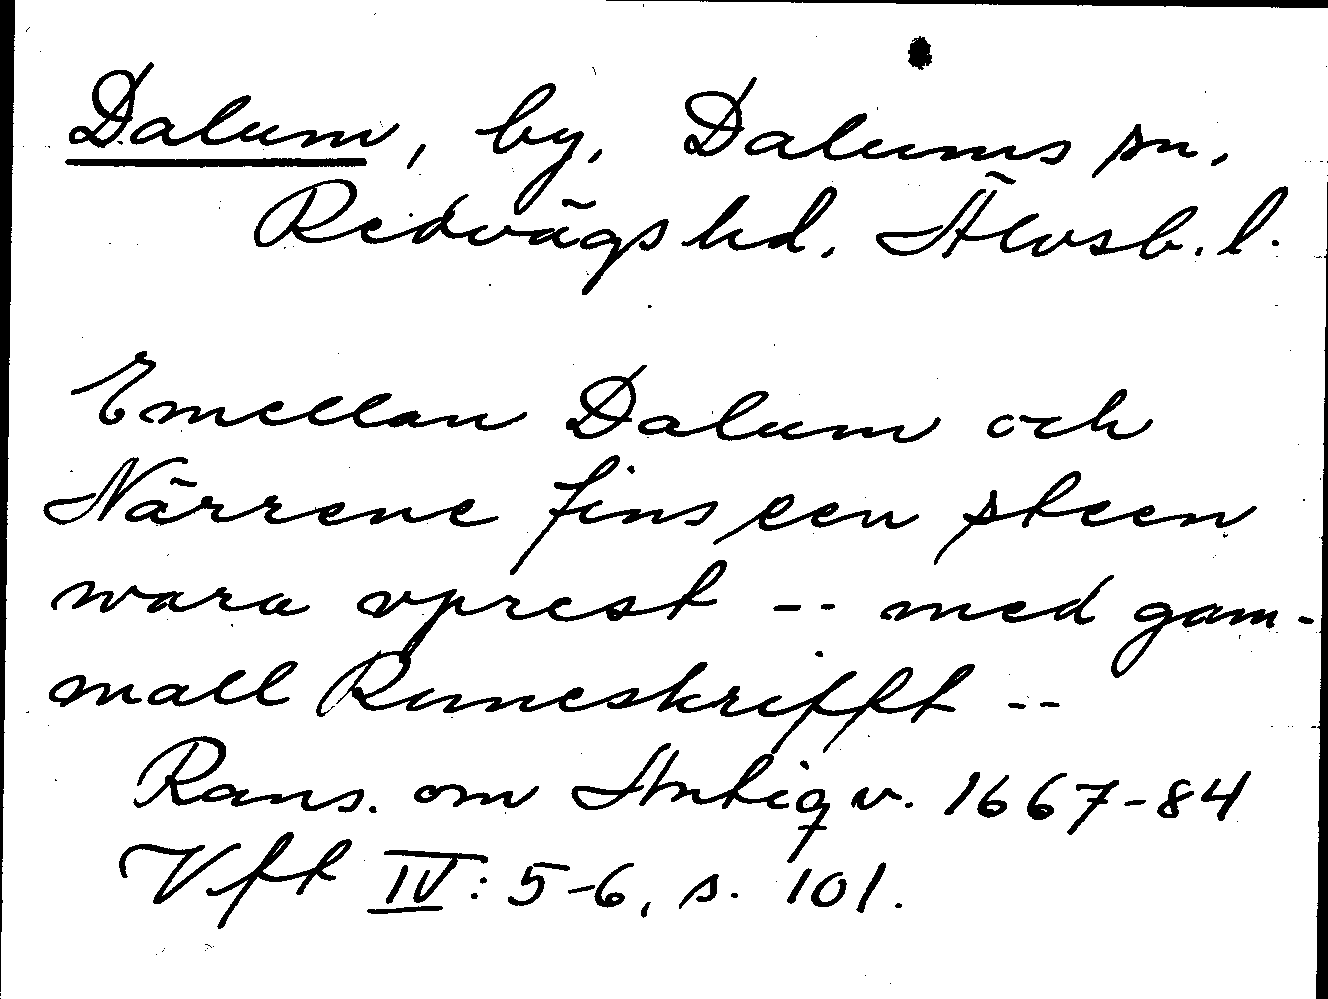 Dalum, by, Dalums sn,
Redvägs hd. Älvsb. l.
Emellan Dalum och
Närrene fins een steen
wara vprest -- med gam-
mall Runeskrifft --
Rans. om Antiqv. 1667-84
Vft IV: 5-6, s. 101.